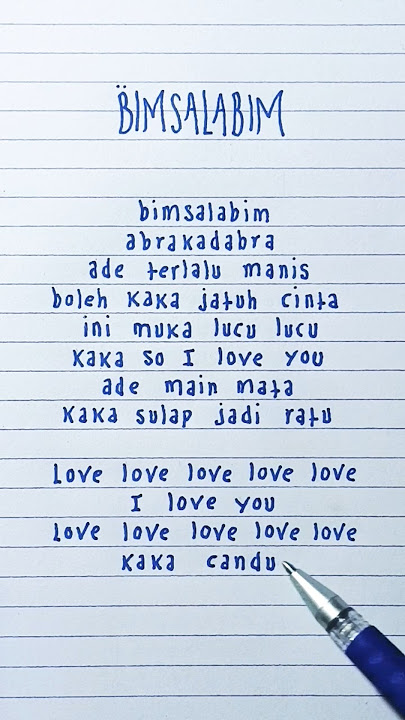 BIMSALABIM
bimsalabim
abrakadabra
ade terlalu manis
boleh kaka jatuh cinta
ini muka lucu lucu
kaka so I love you
ade main mata
kaka sulap jadi ratu
Love love love love love
I love you
Love love love love love
kaka candu